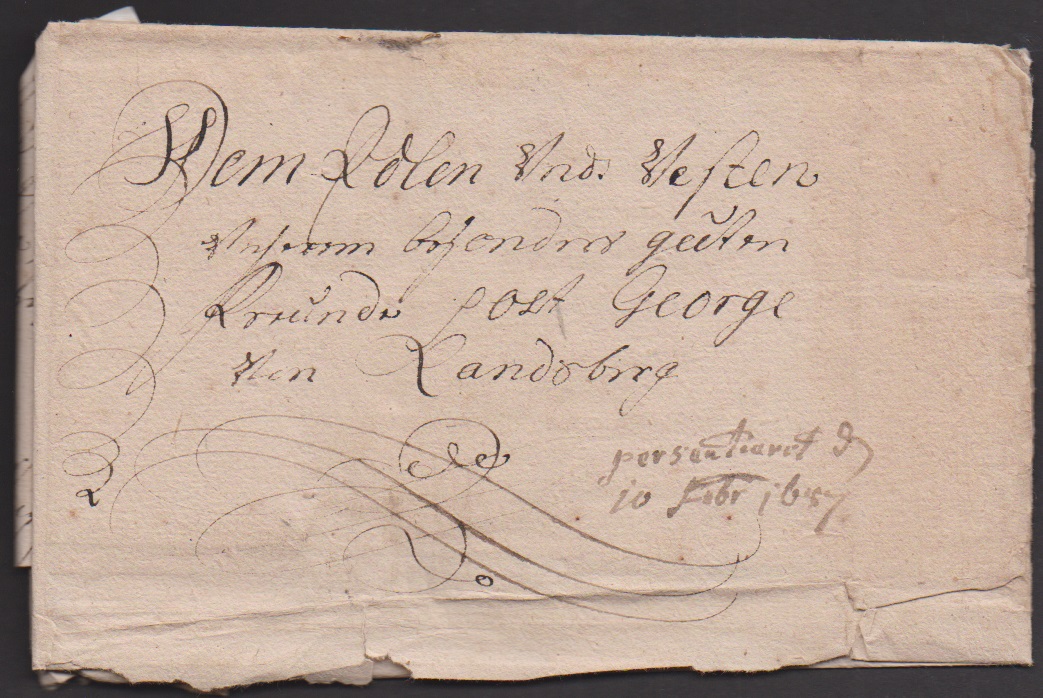 Dem Edlen Vnd Vesten
Vnserm besonder gùten
Freùnde Jost George
Von Landsberg
persentiaret d
10 Febr 1657